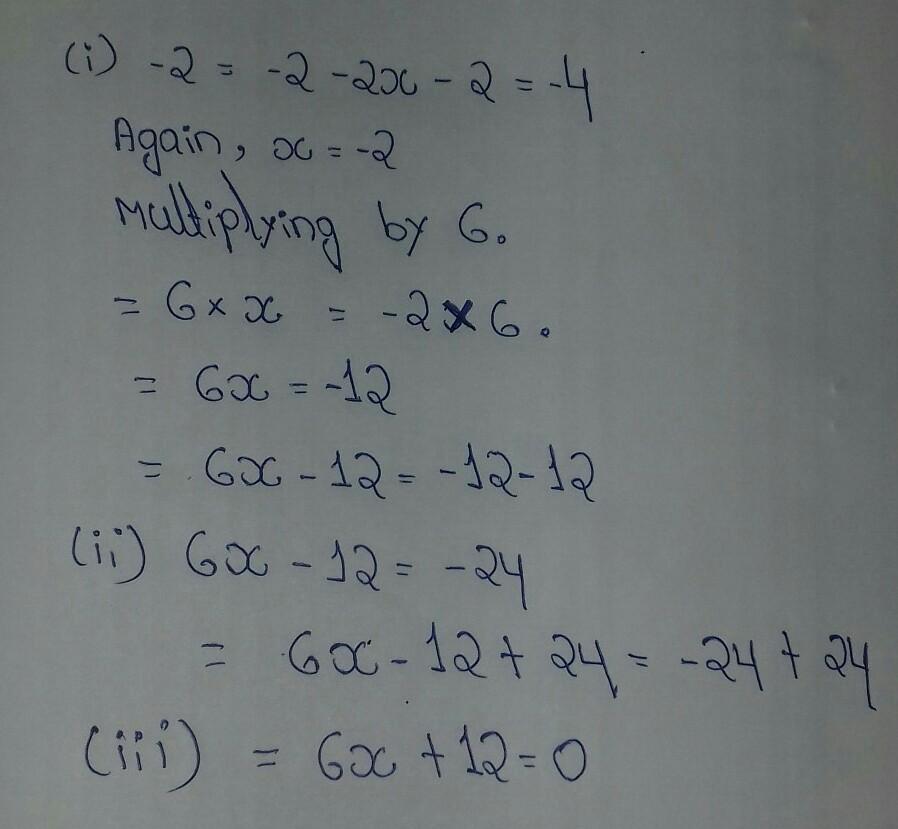 (i) -2 = -2 -2x - 2 = -4
Again, x = -2
Multiplying by 6.
= 6 × x = -2 × 6.
= 6x = -12
= 6x - 12 = -12 - 12
(ii) 6x - 12 = -24
= 6x - 12 + 24 = -24 + 24
(iii) = 6x + 12 = 0